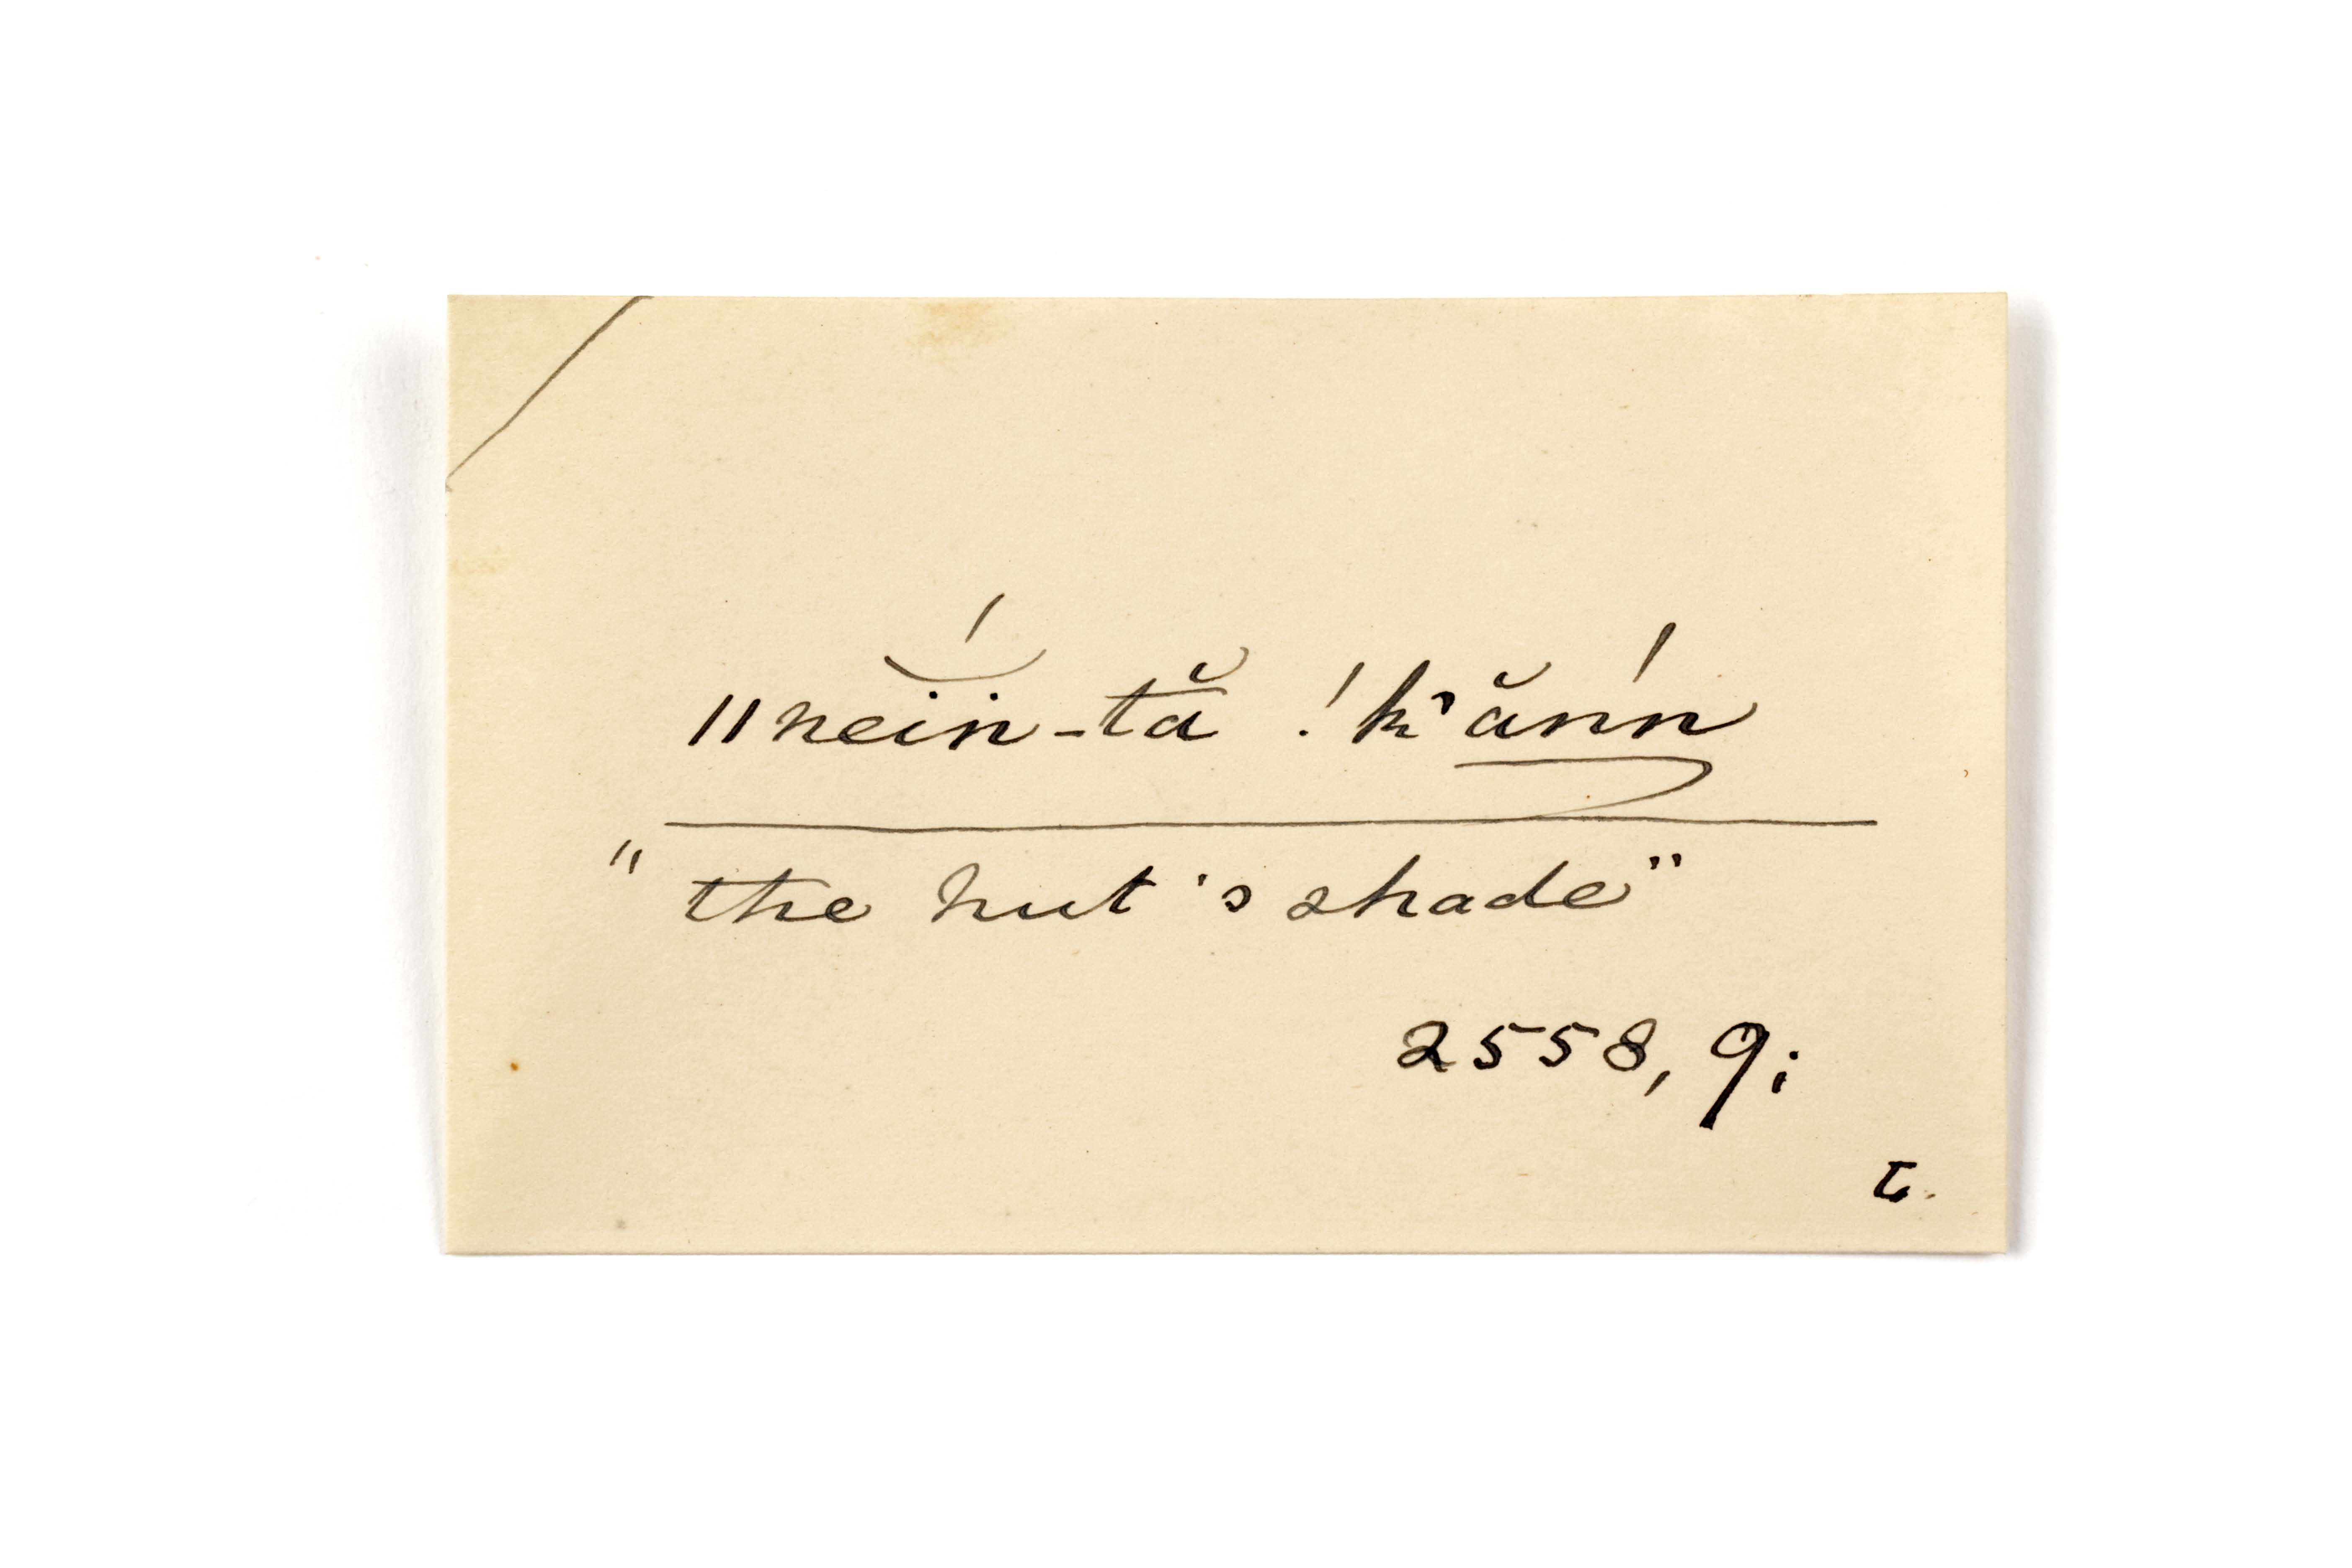 ǁnĕ́iṅ-tă ǃk'ănń
"the hut's shade"
2558, 9;
L.